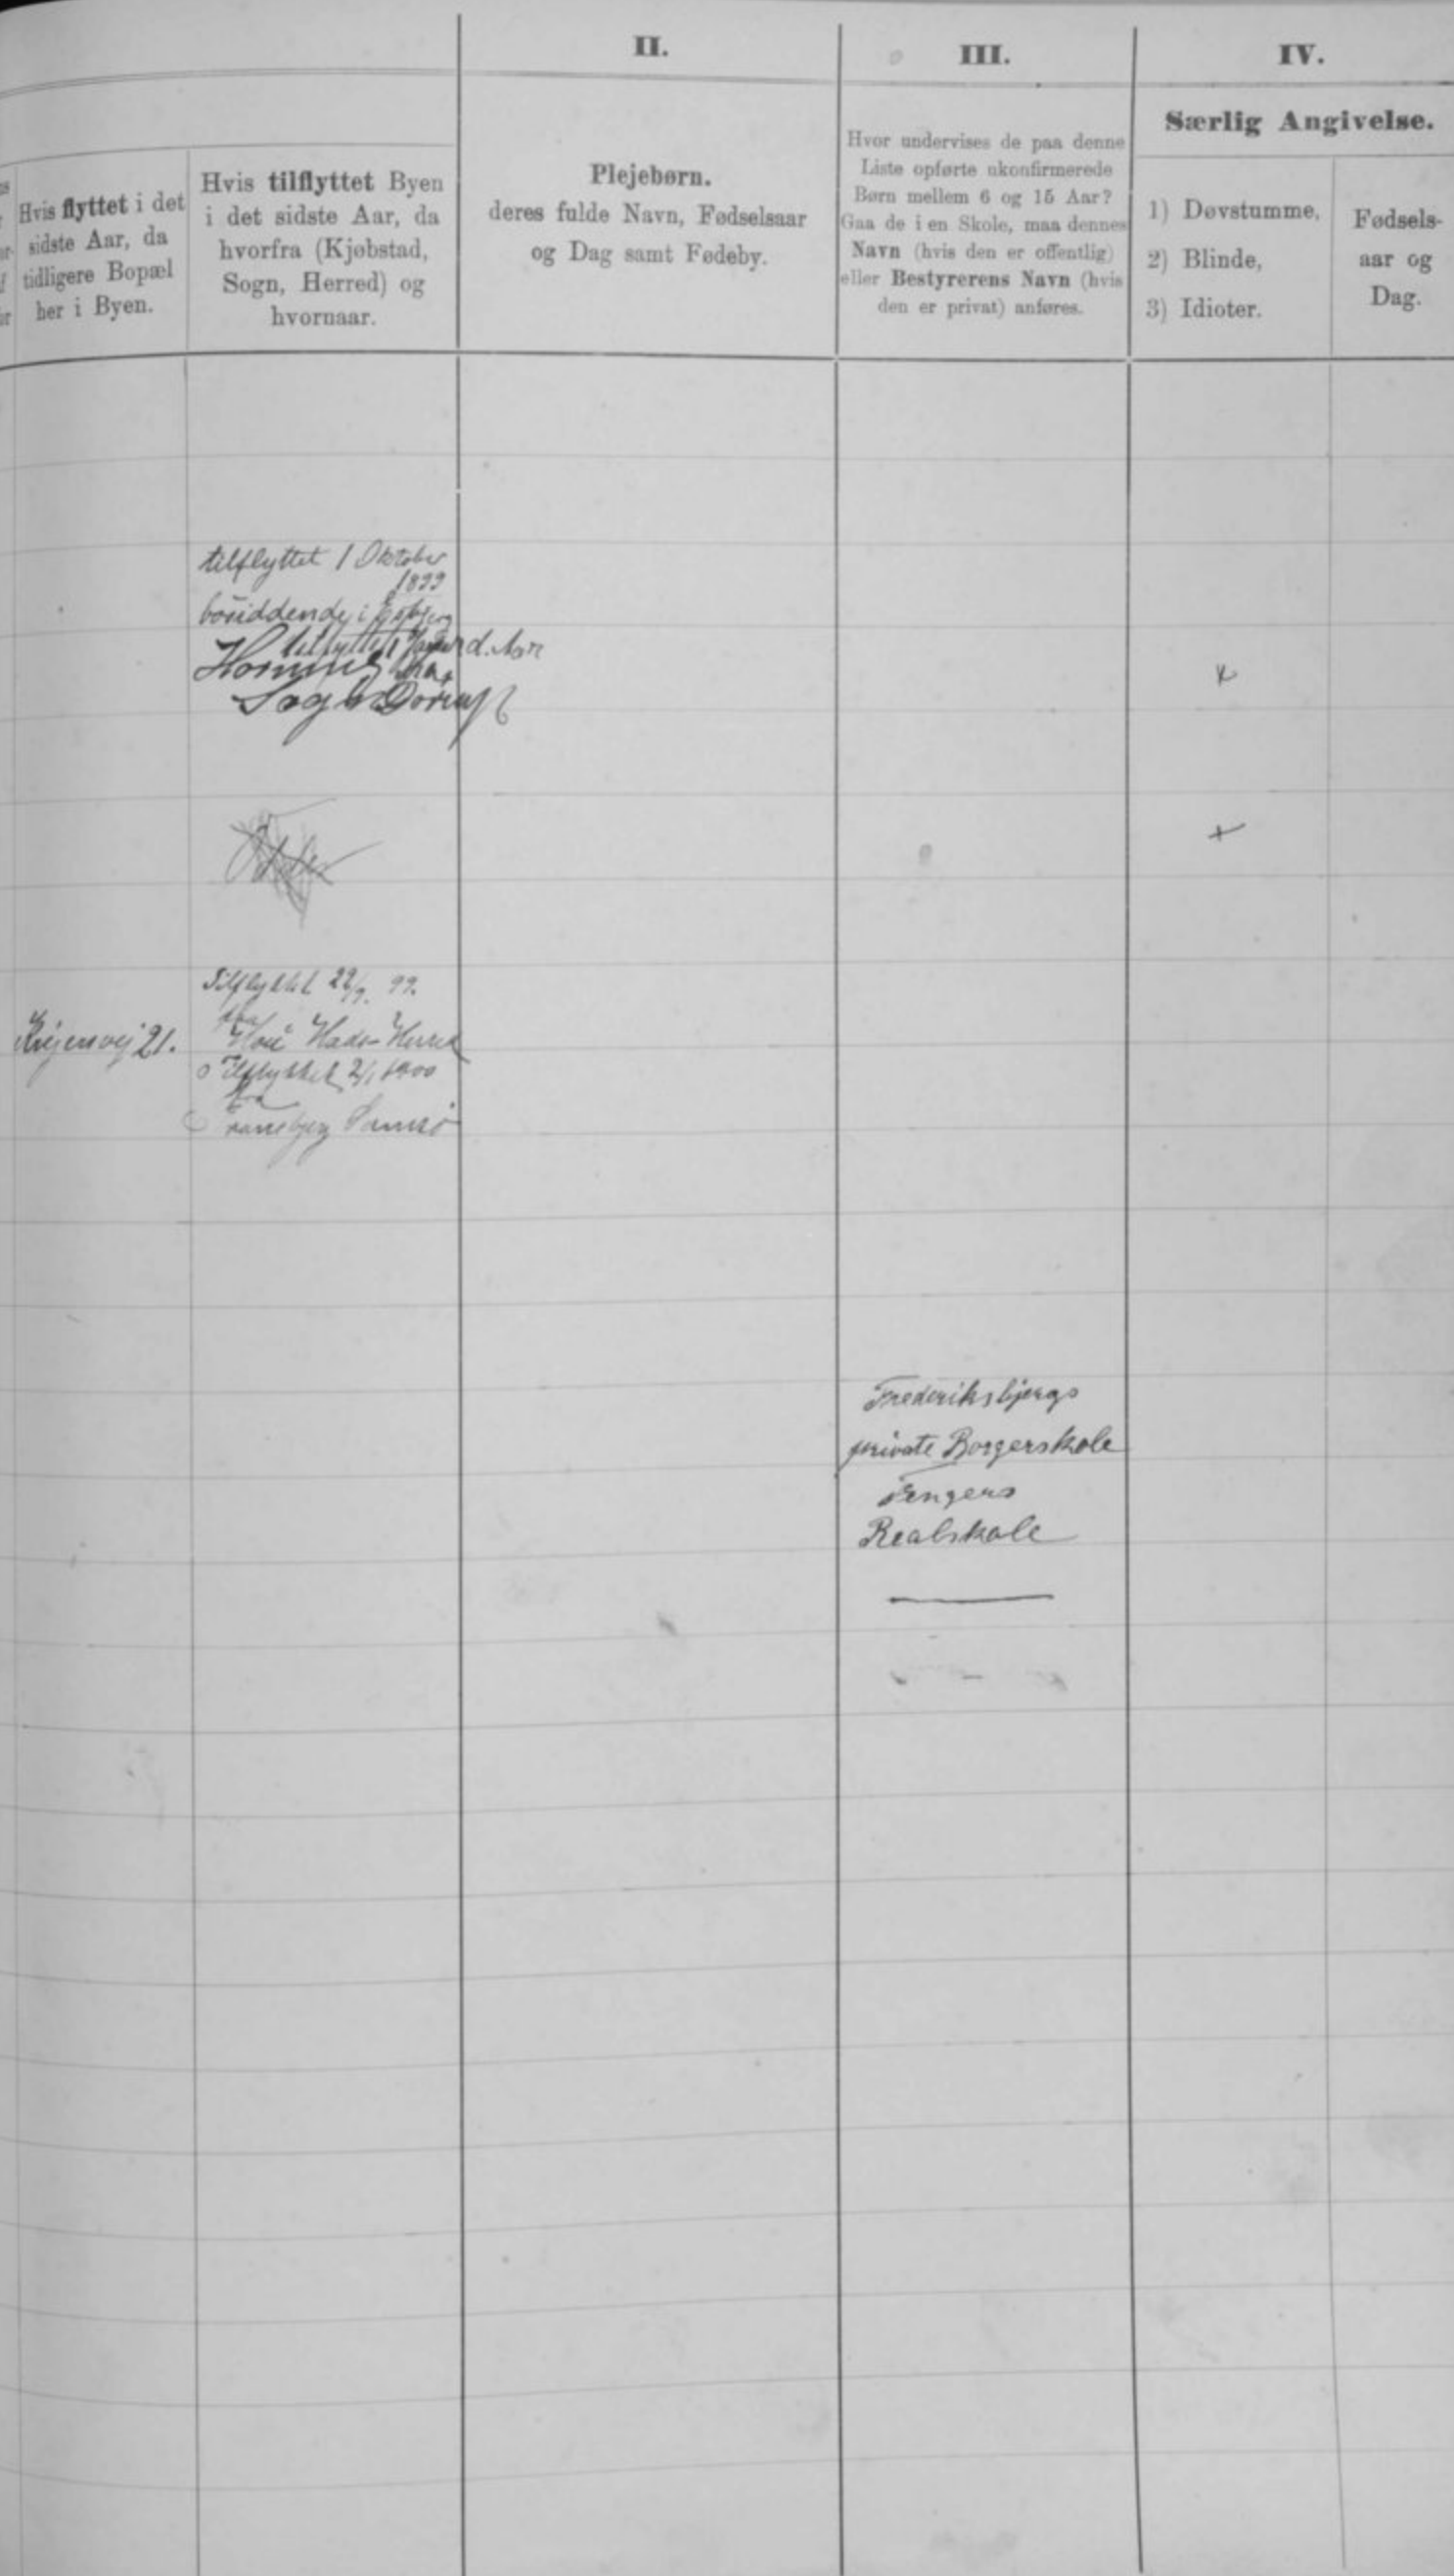 II.
III.
IV.
Særlig Angivelse.
Hvis flyttet i det
sidste Aar, da
tidligere Bopæl
her i Byen.
Hvis tilflyttet Byen
i det sidste Aar, da
hvorfra (Kjøbstad,
Sogn, Herred) og
hvornaar.
Plejebørn.
deres fulde Navn, Fødselsaar
og Dag samt Fødeby.
Hvor undervises de paa denne
Liste opførte ukonfirmerede
Børn mellem 6 og 15 Aar?
Gaa de i en Skole, maa dennes
Navn (hvis den er offentlig)
eller Bestyrerens Navn (hvis
den er privat) anføres.
1) Døvstumme,
2) Blinde,
3) Idioter.
Fødsels-
aar og
Dag.
tilflyttet 1 Oktober
1899
bosiddende i Esbjerg
tilflyttet d. Aar
Horning
Sogn
Tilflyttet 22/9. 99.
fra
Hou Hads-Herred
Tilflyttet 2/1 1900
fra
Tranebjerg Samsø
21.
Frederiksbjergs
private Borgerskole
Fengers
Realskole